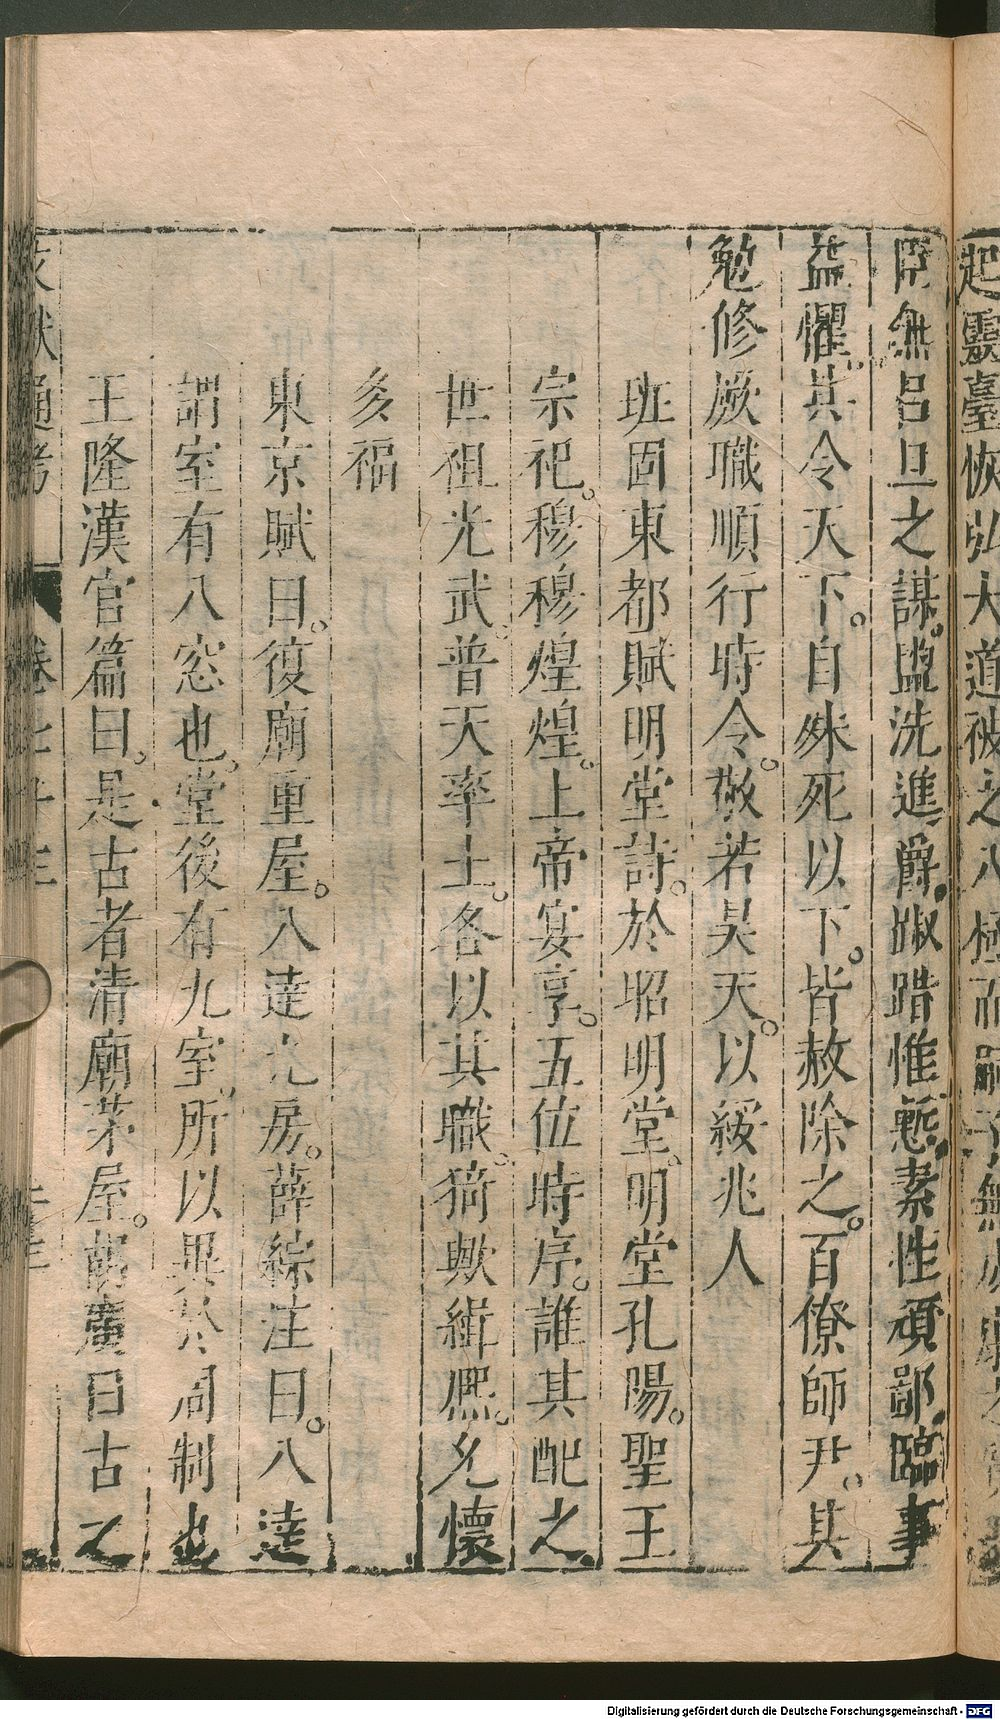 起靈臺恢弘大道被之八極而嗣子無成康之
臣無呂旦之謀。盥洗進爵。踧踖惟慙。素性頑鄙。臨事
益懼。其令天下。自殊死以下。皆赦除之。百僚師尹。其
勉修厥職順行時令。敬若昊天。以綏兆人
班固東都賦明堂詩。於昭明堂。明堂孔陽。聖王
宗祀。穆穆煌煌。上帝宴享。五位時序。誰其配之。
世祖光武。普天率土。各以其職。猗歟緝熈。允懷
多福
東京賦曰。復廟重屋。八達九房。薛綜注曰。八達
謂室有八窓也。堂後有九室。所以異於周制也
王隆漢官篇曰。是古者清廟茅屋。胡廣曰古之
文獻通考 卷七十三
Digitalisierung gefördert durch die Deutsche Forschungsgemeinschaft - DFG